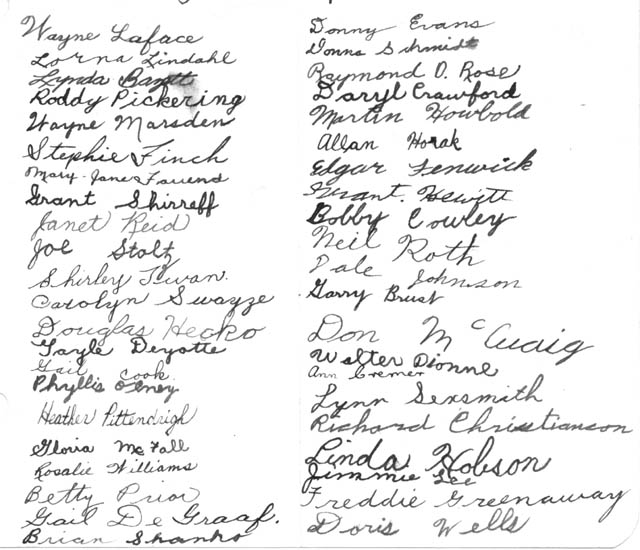 Wayne Laface
Lorna Lindahl
Lynda
Roddy Pickering
Wayne Marsden
Stephie Finch
Mary-Jane
Grant Shirreff
Janet Reid
Joe Stoltz
Shirley
Carolyn Swayze
Douglas Hecko
Gayle Deyotte
Gail Cook
Phyllis Olney
Heather Pittendrigh
Gloria McFall
Rosalie Williams
Betty Prior
Gail De Graaf.
Brian Shanko
Donny Evans
Donna Schmidt
Raymond D. Rose
Daryl Crawford
Martin Howbold
Allan Horak
Edgar Fenwick
Grant. Hewitt
Bobby Cowley
Neil Roth
Dale Johnson
Garry Brust
Don McCuaig
Walter Dionne
Ann Cremer
Lynn Sexsmith
Richard Christianson
Linda Hobson
Jimmie Lee
Freddie Greenaway
Doris Wells